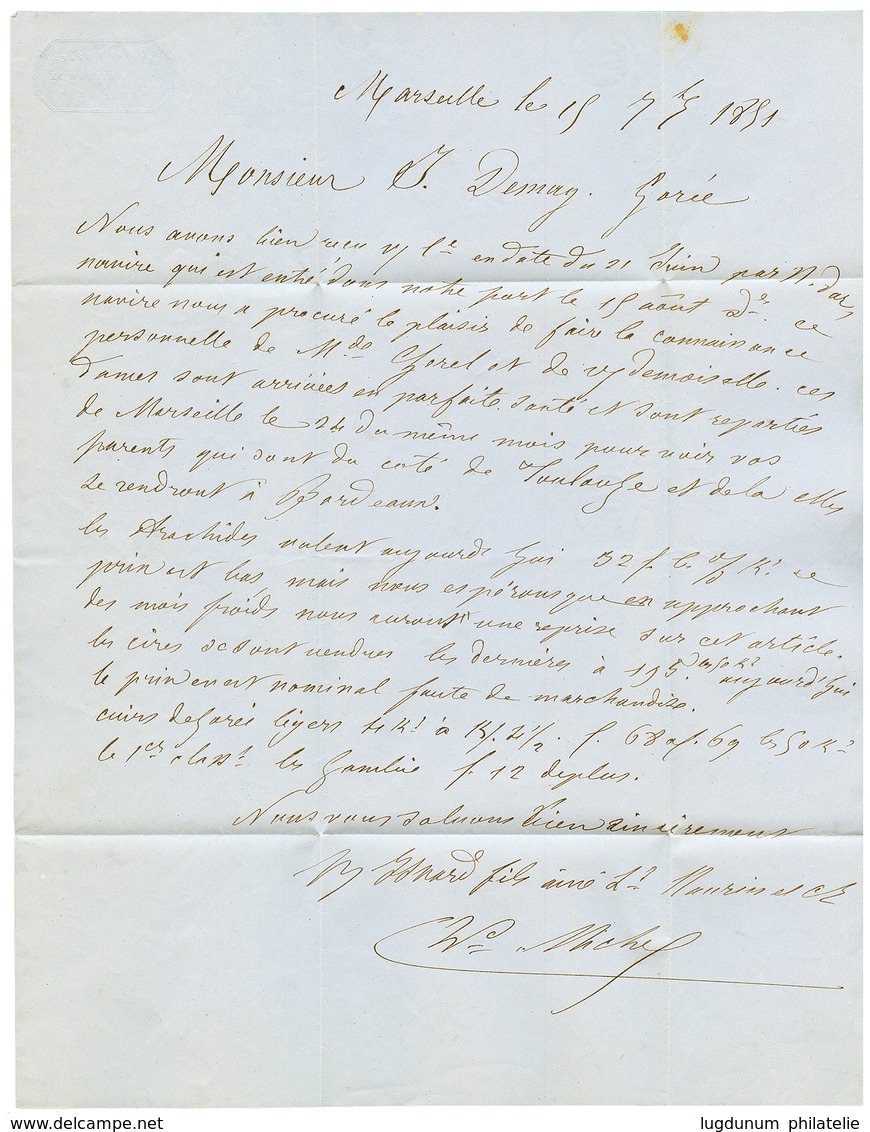 Marseille le 15 7bre 1851
Monsieur J. Demay. Gorée
Nous avons bien reçu v/ Le en date du 21 Juin par N. Dar
navire qui est entré dans notre port le 15 août Der. ce
navire nous a procuré le plaisir de faire la connaissance
personnelle de Mde et de v/ demoiselle. ces
dames sont arrivées en parfaite santé et sont reparties
de Marseille le 24 du même mois pour voir vos
parents qui sont du coté de Toulouse et de la elles
se rendront à Bordeaux.
les Arachides valent aujourd'hui 32 f. les % Ks ce
prix est bas mais nous espérons que en approchant
des mois froids nous aurons une reprise sur cet article.
les cires se sont vendues les dernières à 195. les 50 Ko aujourd'hui
le prix en est nominal faute de marchandise.
cuirs de Gorée légers 4 Ks à 4 1/2. f. 68 a f. 69 les 50 Ko
le 1er les Gambie f. 12 de plus.
Nous vous saluons bien sincèrement
fils ainé et Cie
delcampe.net
lugdunum philatelie